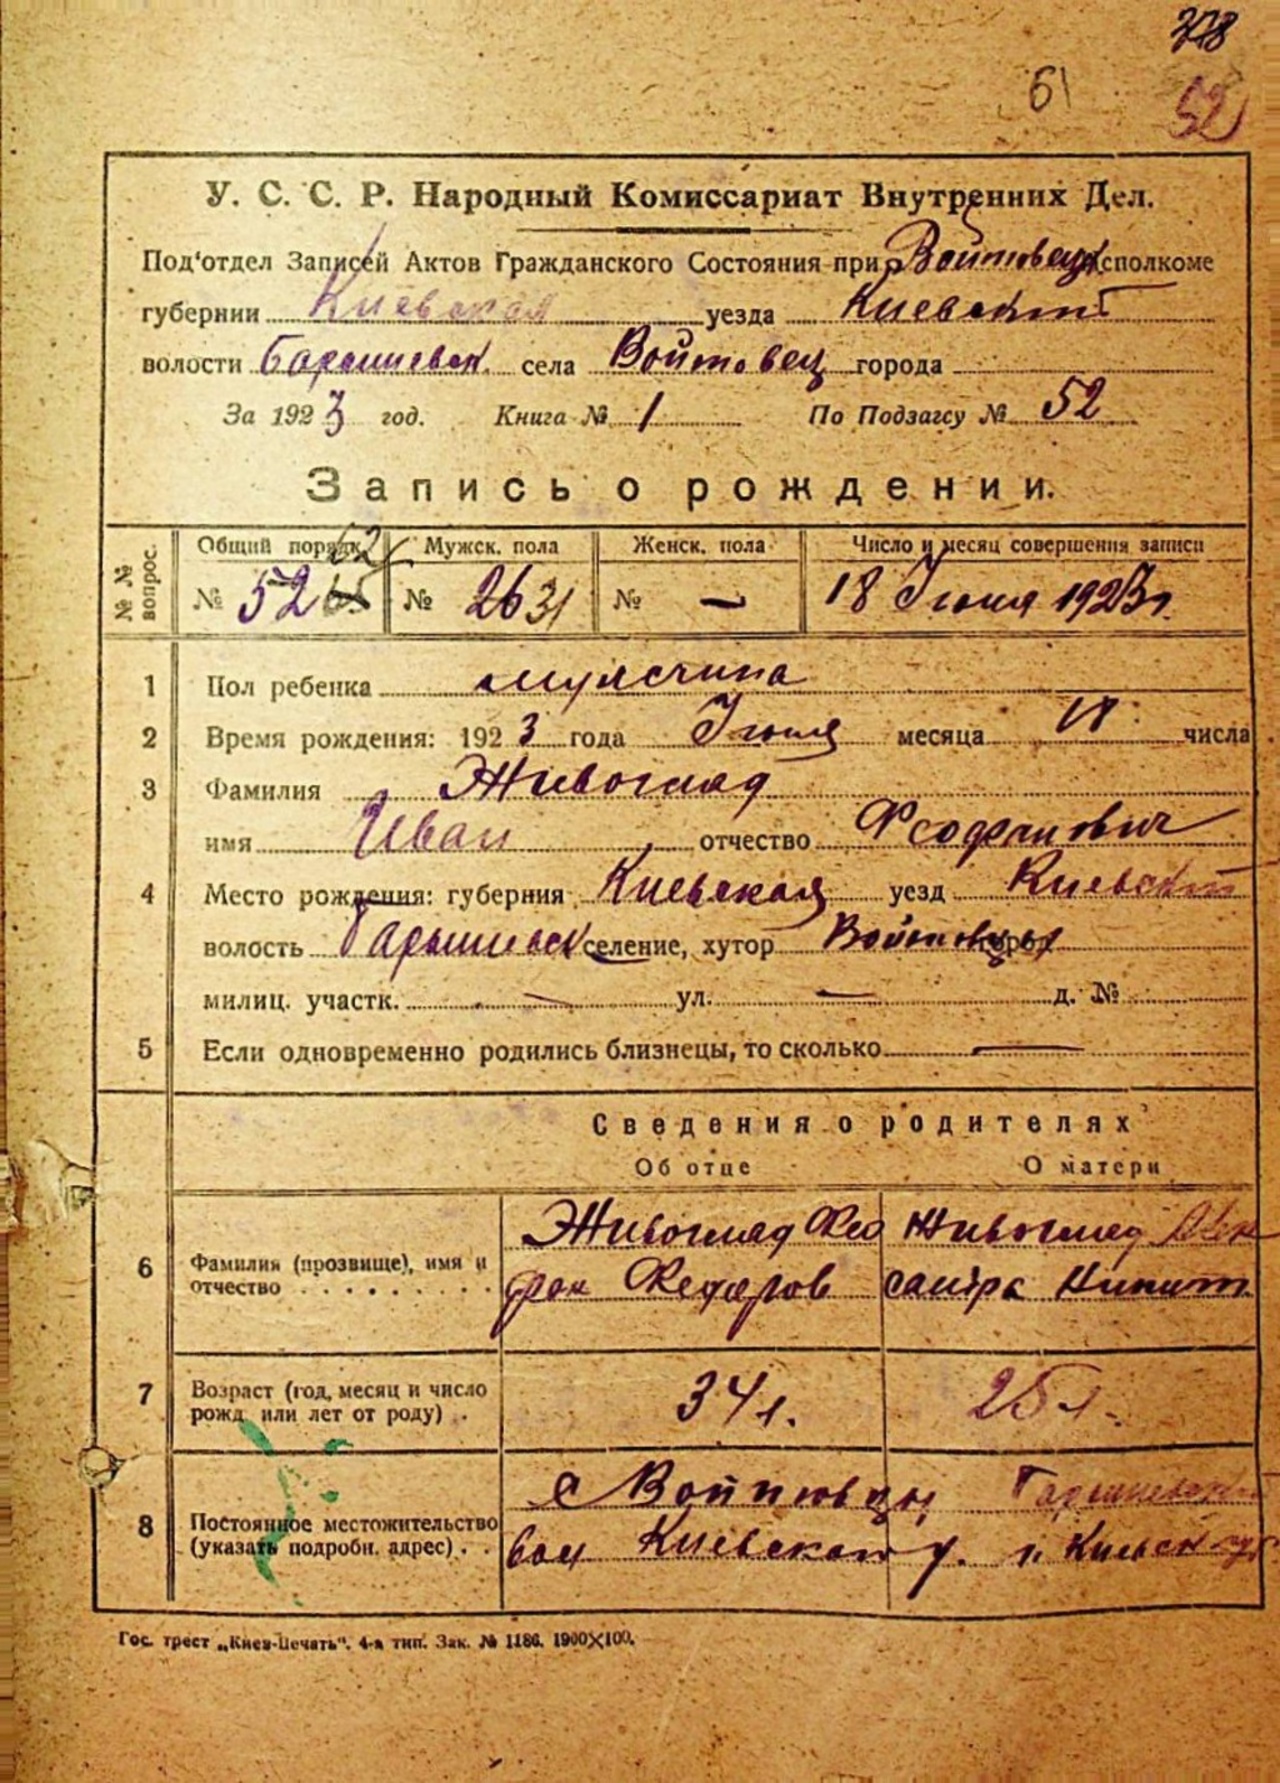 52
У. С. С. Р. Народный Комиссариат Внутренних Дел.
Под'отдел Записей Актов Гражданского Состояния при Войтовец Исполкоме
губернии Киевская уезда Киевский
волости Барышевск. села Войтовец города
За 1923 год. Книга № 1 По Подзагсу № 52
Запись о рождении.
№ № вопрос.
Общий порядк. Мужск. пола Женск. пола Число и месяц совершения записи
62
№ 52 № 26 31 № — 18 Июня 1923 г.
1 Пол ребенка мужчина
2 Время рождения: 1923 года Июня месяца числа
3 Фамилия Живогляд
имя Иван отчество Феофанович
4 Место рождения: губерния Киевская уезд Киевский
волость Барышевск селение, хутор Войтовцы город
милиц. участк. — ул. — д. №
5 Если одновременно родились близнецы, то сколько —
Сведения о родителях
Об отце О матери
6 Фамилия (прозвище), имя и отчество Живогляд Феофан Федоров Живогляд Александра Никит.
7 Возраст (год, месяц и число рожд. или лет от роду) 34 л. 25 л.
8 Постоянное местожительство (указать подробн. адрес) с Войтовцы Барышевской
вол Киевского у. Киевск губ
Гос. трест „Киев-Печать“. 4-я тип. Зак. № 1186. 1900×100.